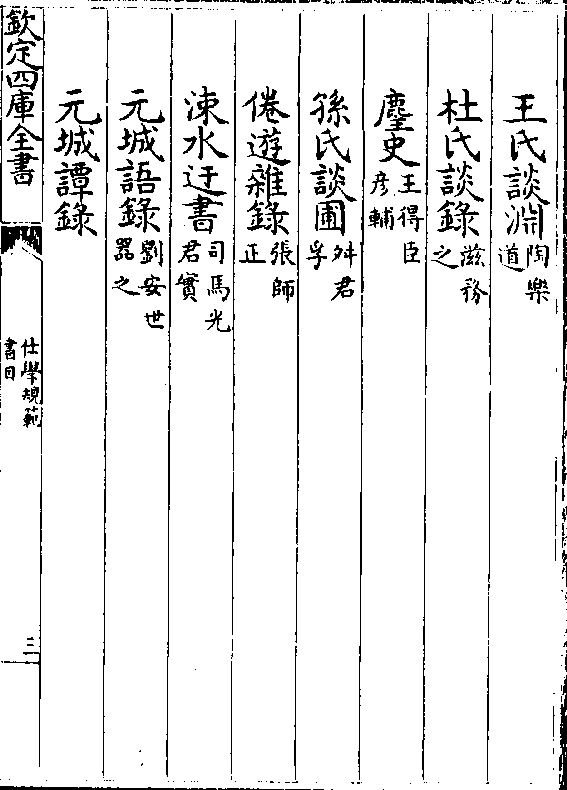 王氏談淵陶樂道
杜氏談錄滋務之
麈史王得臣彦輔
孫氏談圃舛君孚
倦遊雜錄張師正
涑水迂書司馬光君實
元城語錄劉安世器之
元城譚錄
欽定四庫全書
仕學規範
書目
三